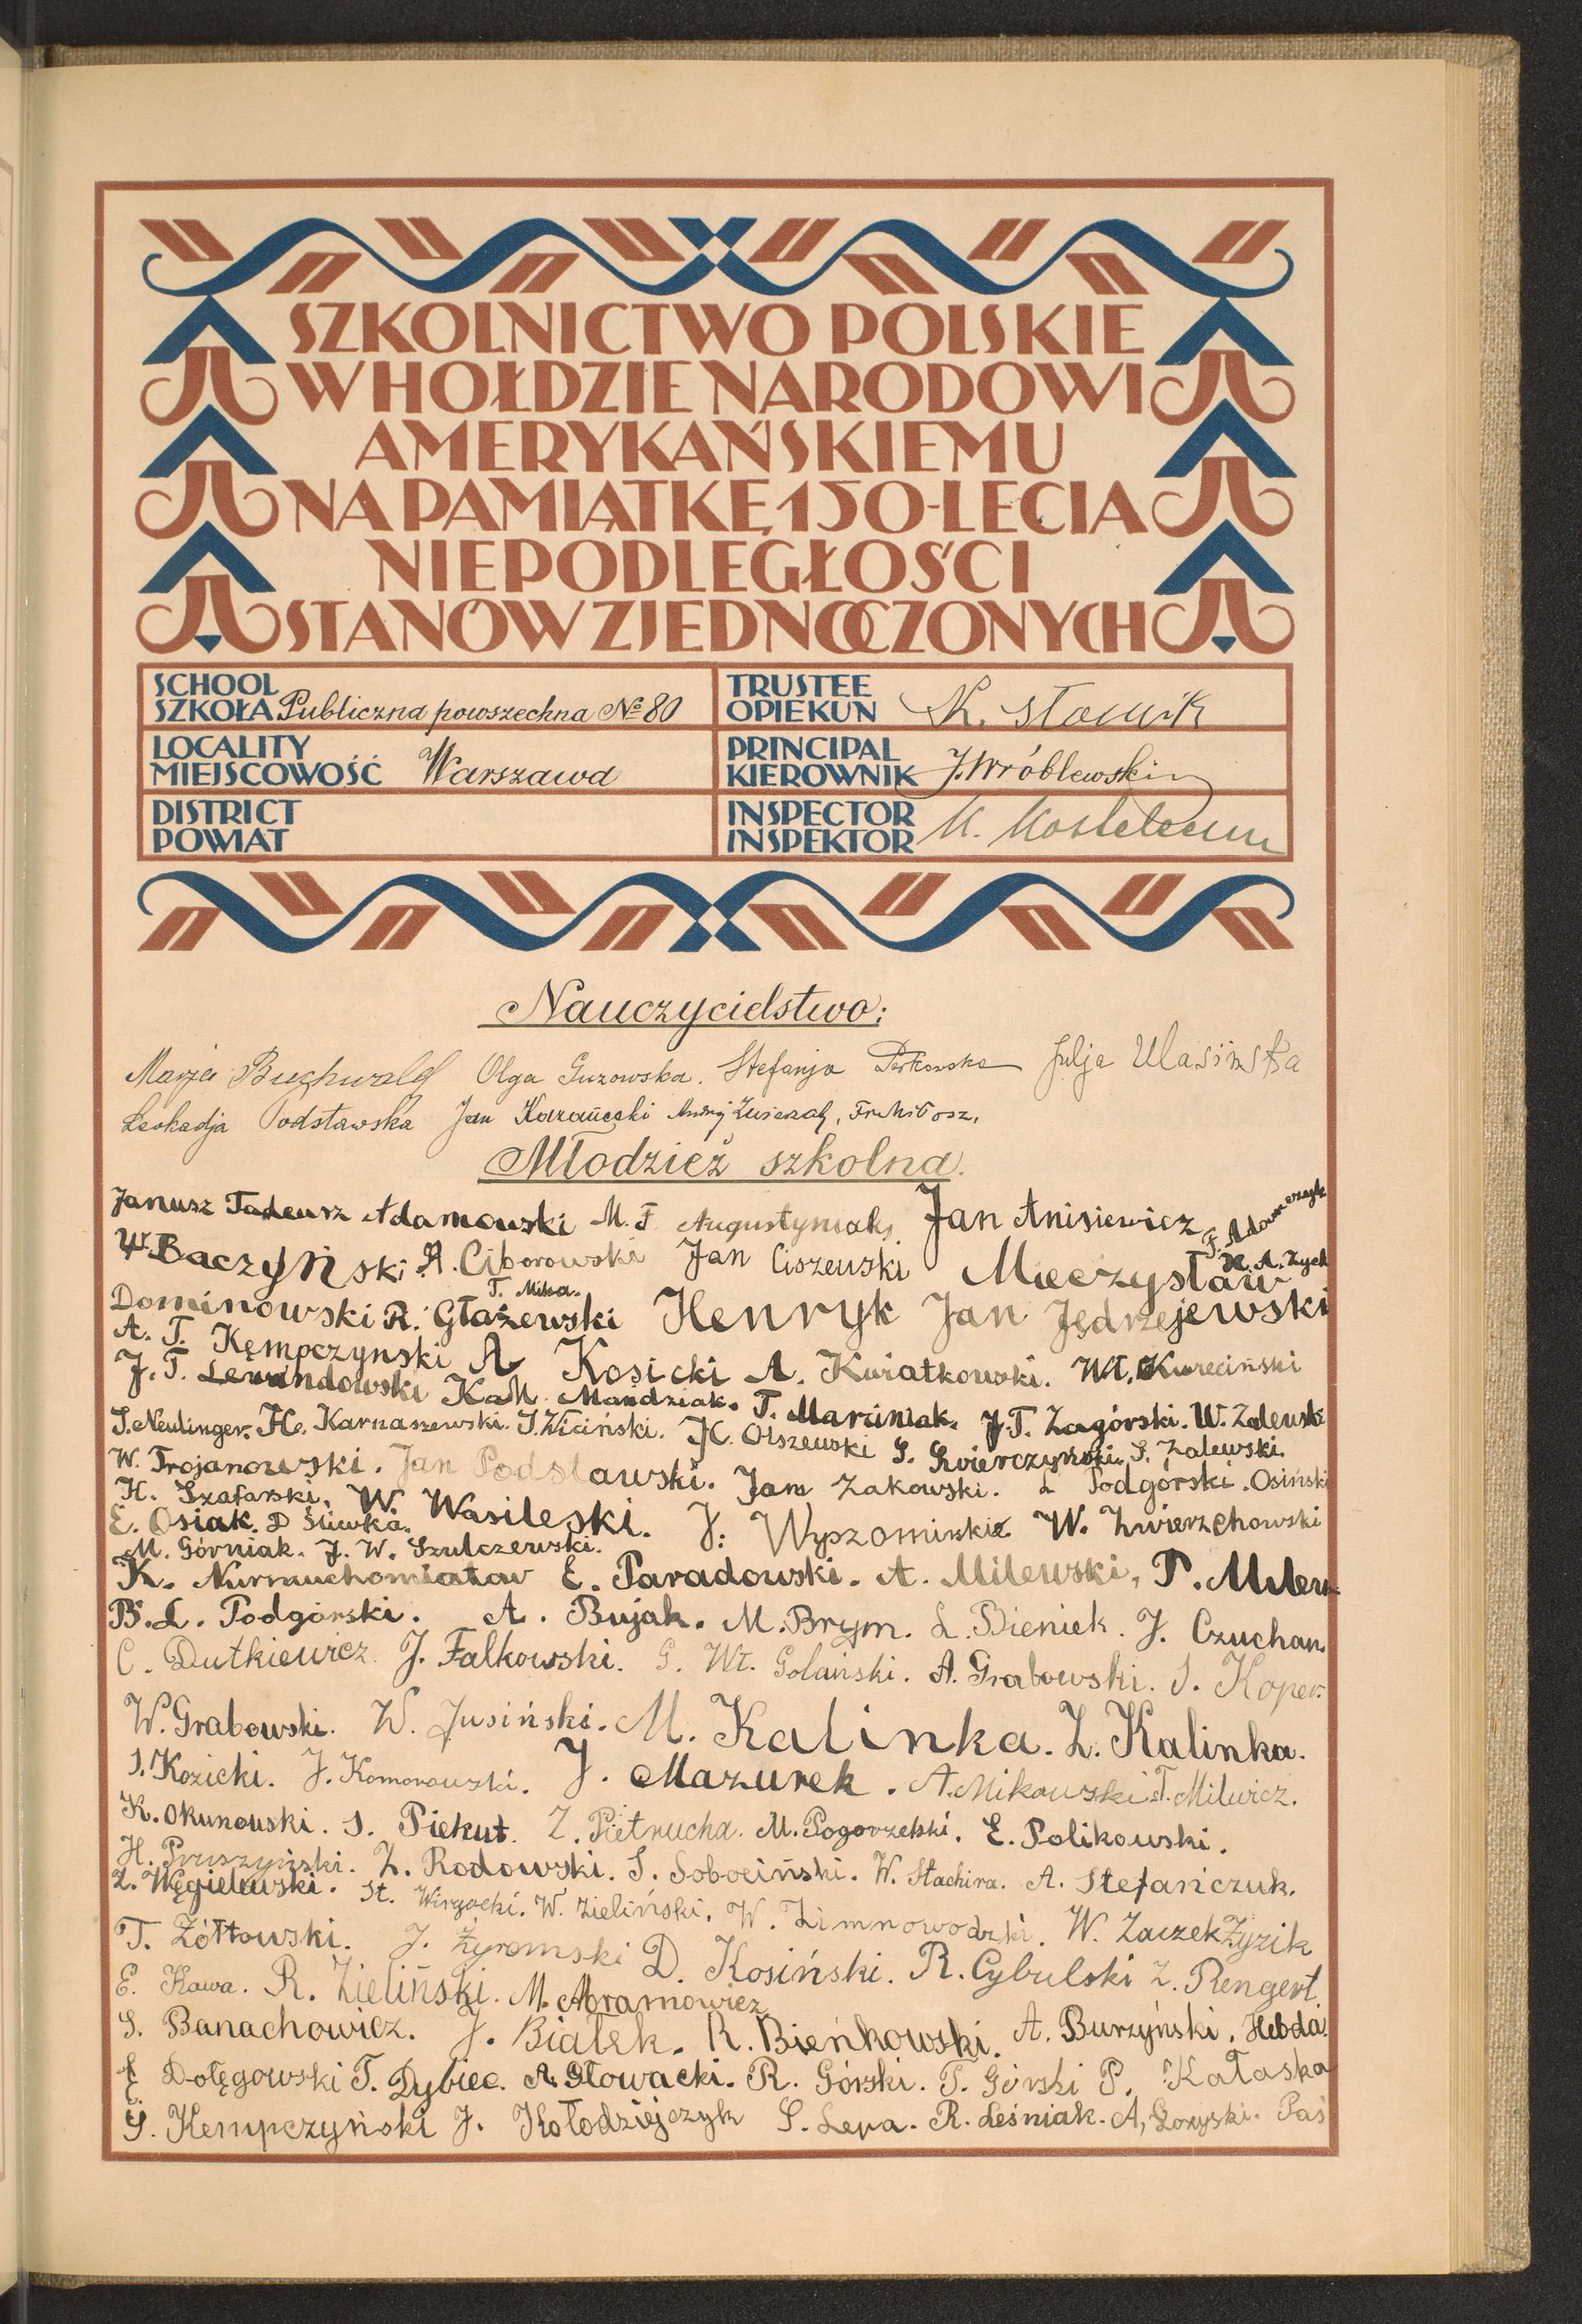 SZKOLNICTWO POLSKIE
W HOŁDZIE NARODOWI
AMERYKAŃSKIEMU
NA PAMIĄTKĘ 150-LECIA
NIEPODLEGŁOŚCI
STANÓW ZJEDNOCZONYCH
SCHOOL
SZKOŁA Publiczna powszechna № 80
TRUSTEE
OPIEKUN K. Słowik
LOCALITY
MIEJSCOWOŚĆ Warszawa
PRINCIPAL
KIEROWNIK J. Wróblewski
DISTRICT
POWIAT
INSPECTOR
INSPEKTOR
Nauczycielstwo:
Marja Buchwald Olga Guzowska. Stefanja Julja Ulasińska
Leokadja Podstawska Jan Andrzej Fr. Miłosz.
Młodzież szkolna.
Janusz Tadeusz Adamowski M. F. Augustyniak, Jan Anisiewicz F. Adamczyk
W. Baczyński A. Ciborowski Jan Ciszewski Mieczysław H. A. Zych
T. Mika.
Dominowski R. Głażewski Henryk Jan Jędrzejewski
A. T. Kempczynski A Kosicki A. Kwiatkowski. Wł. Kwieciński
J. T. Lewandowski Kaz. Mandziak. T. Marciniak. J. T. Zagórski. W. Zalewski
S. Neulinger. He. Karnaszewski. J. Wiciński. K. Olszewski S. Świerczyński. S. Zalewski.
W. Trojanowski. Jan Podstawski. Jan Zakowski. L Podgórski. Osiński
H. Szafarski. W. Wasileski. J. W. Zwierzchowski
E. Osiak. D Śliwka.
M. Górniak. J. W. Szulczewski.
K. Nurmuchomiatow E. Paradowski. A. Milewski, P. Milew
B. L. Podgórski. A. Bujak. M. Brym. L. Bieniek. J. Czuchan.
C. Dutkiewicz. J. Falkowski. G. Wł. Golański. A. Grabowski. S. Koper.
W. Grabowski. W. Jusiński. M. Kalinka. Z. Kalinka.
S. Kozicki. J. Komorowski. J. Mazurek. A. Mikowski T. Milwicz.
K. Okunowski. S. Piekut. Z. Pietrucha. M. Pogorzelski. E. Polikowski.
H. Pruszyński. Z. Rodowski. S. Sobociński. W. Stachira. A. Stefańczuk.
Z. Węgielewski. St. Wirzocki. W. Zieliński. W. Zimnowodzki. W. Zaczek Zyzik
T. Żółtowski. J. Żyromski D. Kosiński. R. Cybulski Z. Rengert.
E. Kawa. R. Zieliński. M. Abramowicz
S. Banachowicz. J. Białek. R. Bieńkowski. A. Burzyński. Hebda.
Dołęgowski T. Dybiec. A. Głowacki. R. Górski. T. Górski P. Kałaska
S. Kempczyński J. Kołodziejczyk S. Lepa. R. Leśniak. A. Łozyski. Paś